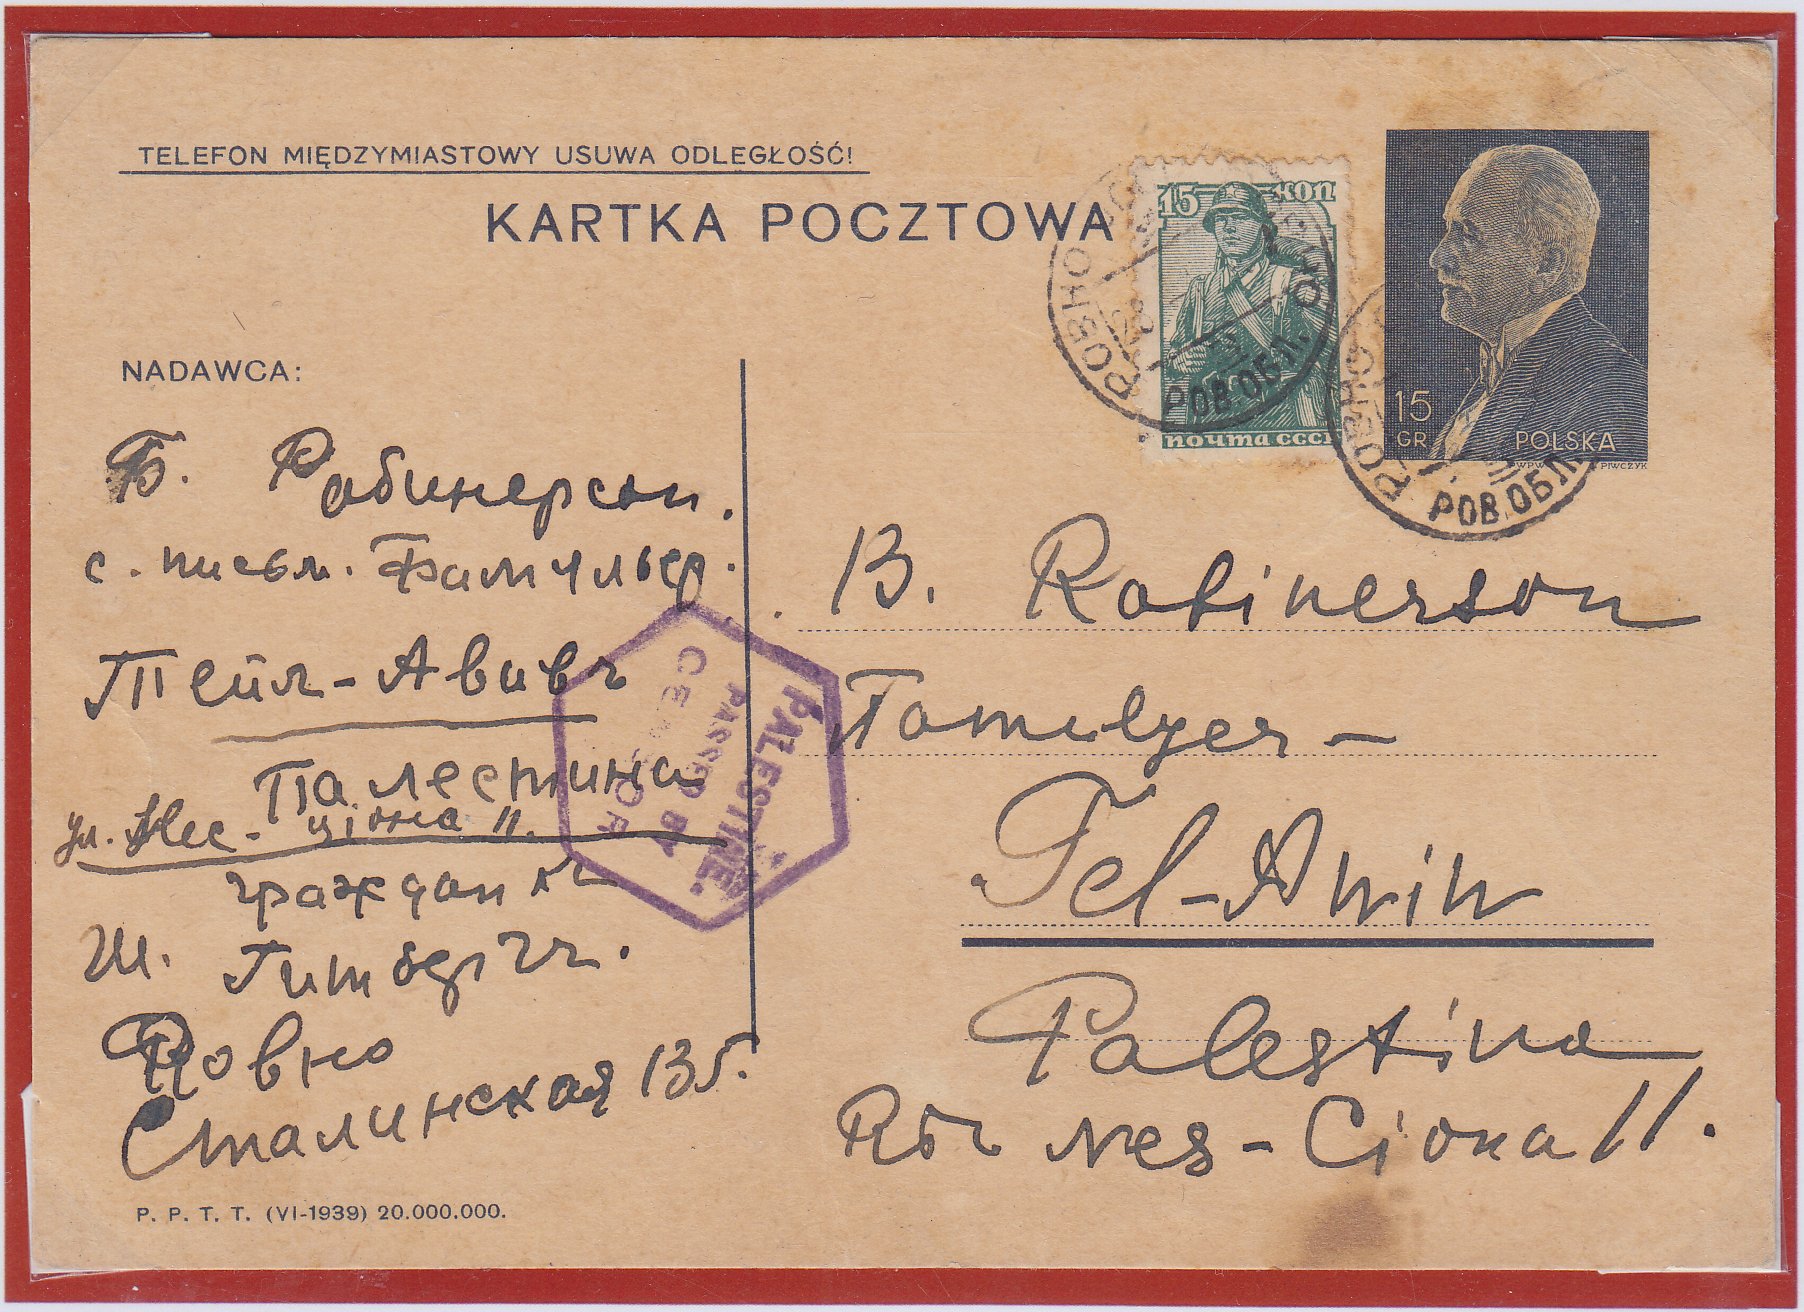 TELEFON MIĘDZYMIASTOWY USUWA ODLEGŁOŚĆ!
KARTKA POCZTOWA
15 КОП
ПОЧТА СССР
РОВНО
РОВ.ОБЛ.
15
GR
POLSKA
WPW
PIWCZYK
РОВНО
РОВ.ОБЛ
NADAWCA:
Б. Рабинерсон.
с. письм. Фамильер.
Тейл-Авивъ
Палестина
ул. Нес-Циона 11.
граждан
Ш.
Ровно
Сталинская 135.
PALESTINE.
PASSED BY
CENSOR
B. Rabinerson
Famulyer-
Tel-Awiw
Palestina
Rōr Nes-Ciona 11.
P. P. T. T. (VI-1939) 20.000.000.